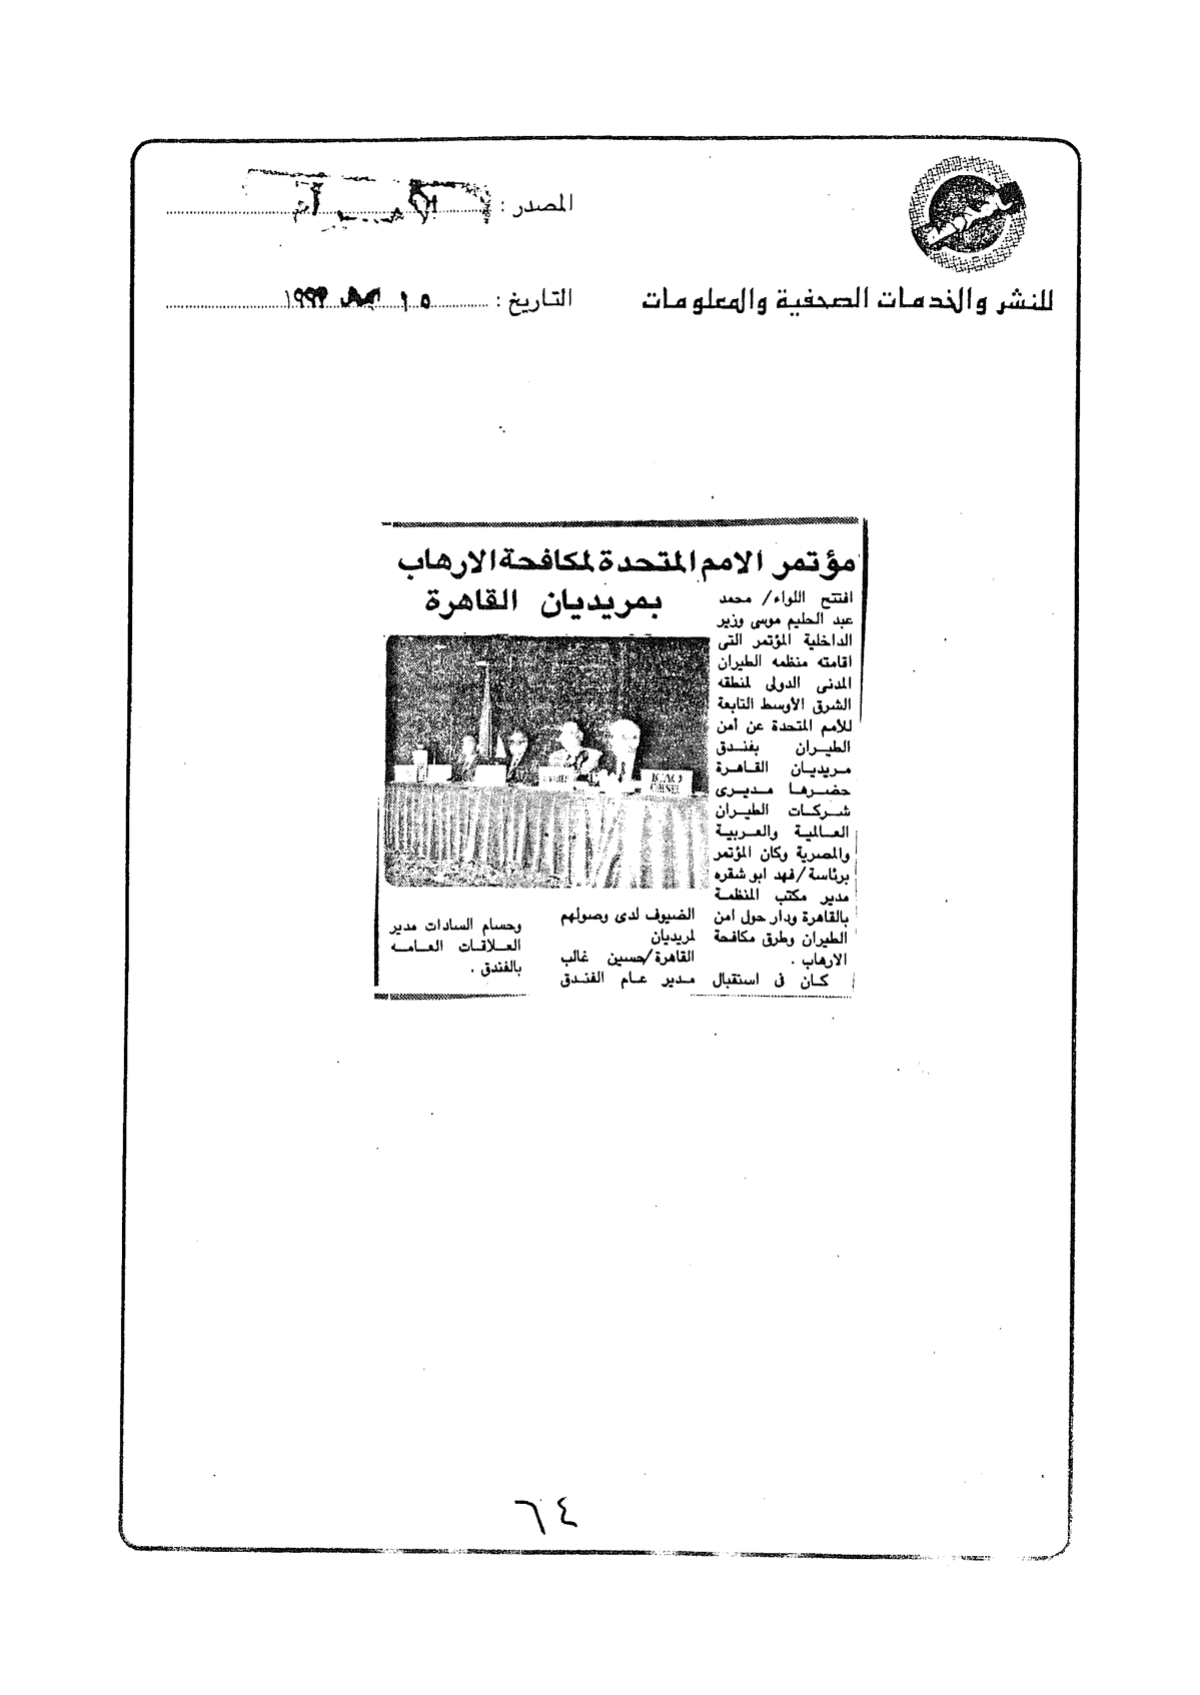 المصدر :
للنشر والخدمات الصحفية والمعلومات
التاريخ : ١٥ ١٩٩٢
مؤتمر الامم المتحدة لمكافحة الارهاب
بمريديان القاهرة
افتتح اللواء/ محمد
عبد الحليم موسى وزير
الداخلية المؤتمر التى
اقامته منظمه الطيران
المدنى الدولى لمنطقه
الشرق الأوسط التابعة
للأمم المتحدة عن أمن
الطيران بفندق
مريديان القاهرة
حضرها مديرى
شركات الطيران
العالمية والعربية
والمصرية وكان المؤتمر
برئاسة/فهد ابو شقره
مدير مكتب المنظمة
بالقاهرة ودار حول امن
الطيران وطرق مكافحة
الارهاب .
كان فى استقبال
الضيوف لدى وصولهم
لمريديان
القاهرة/حسين غالب
مدير عام الفندق
وحسام السادات مدير
العلاقات العامه
بالفندق .
ICAO
٦٤